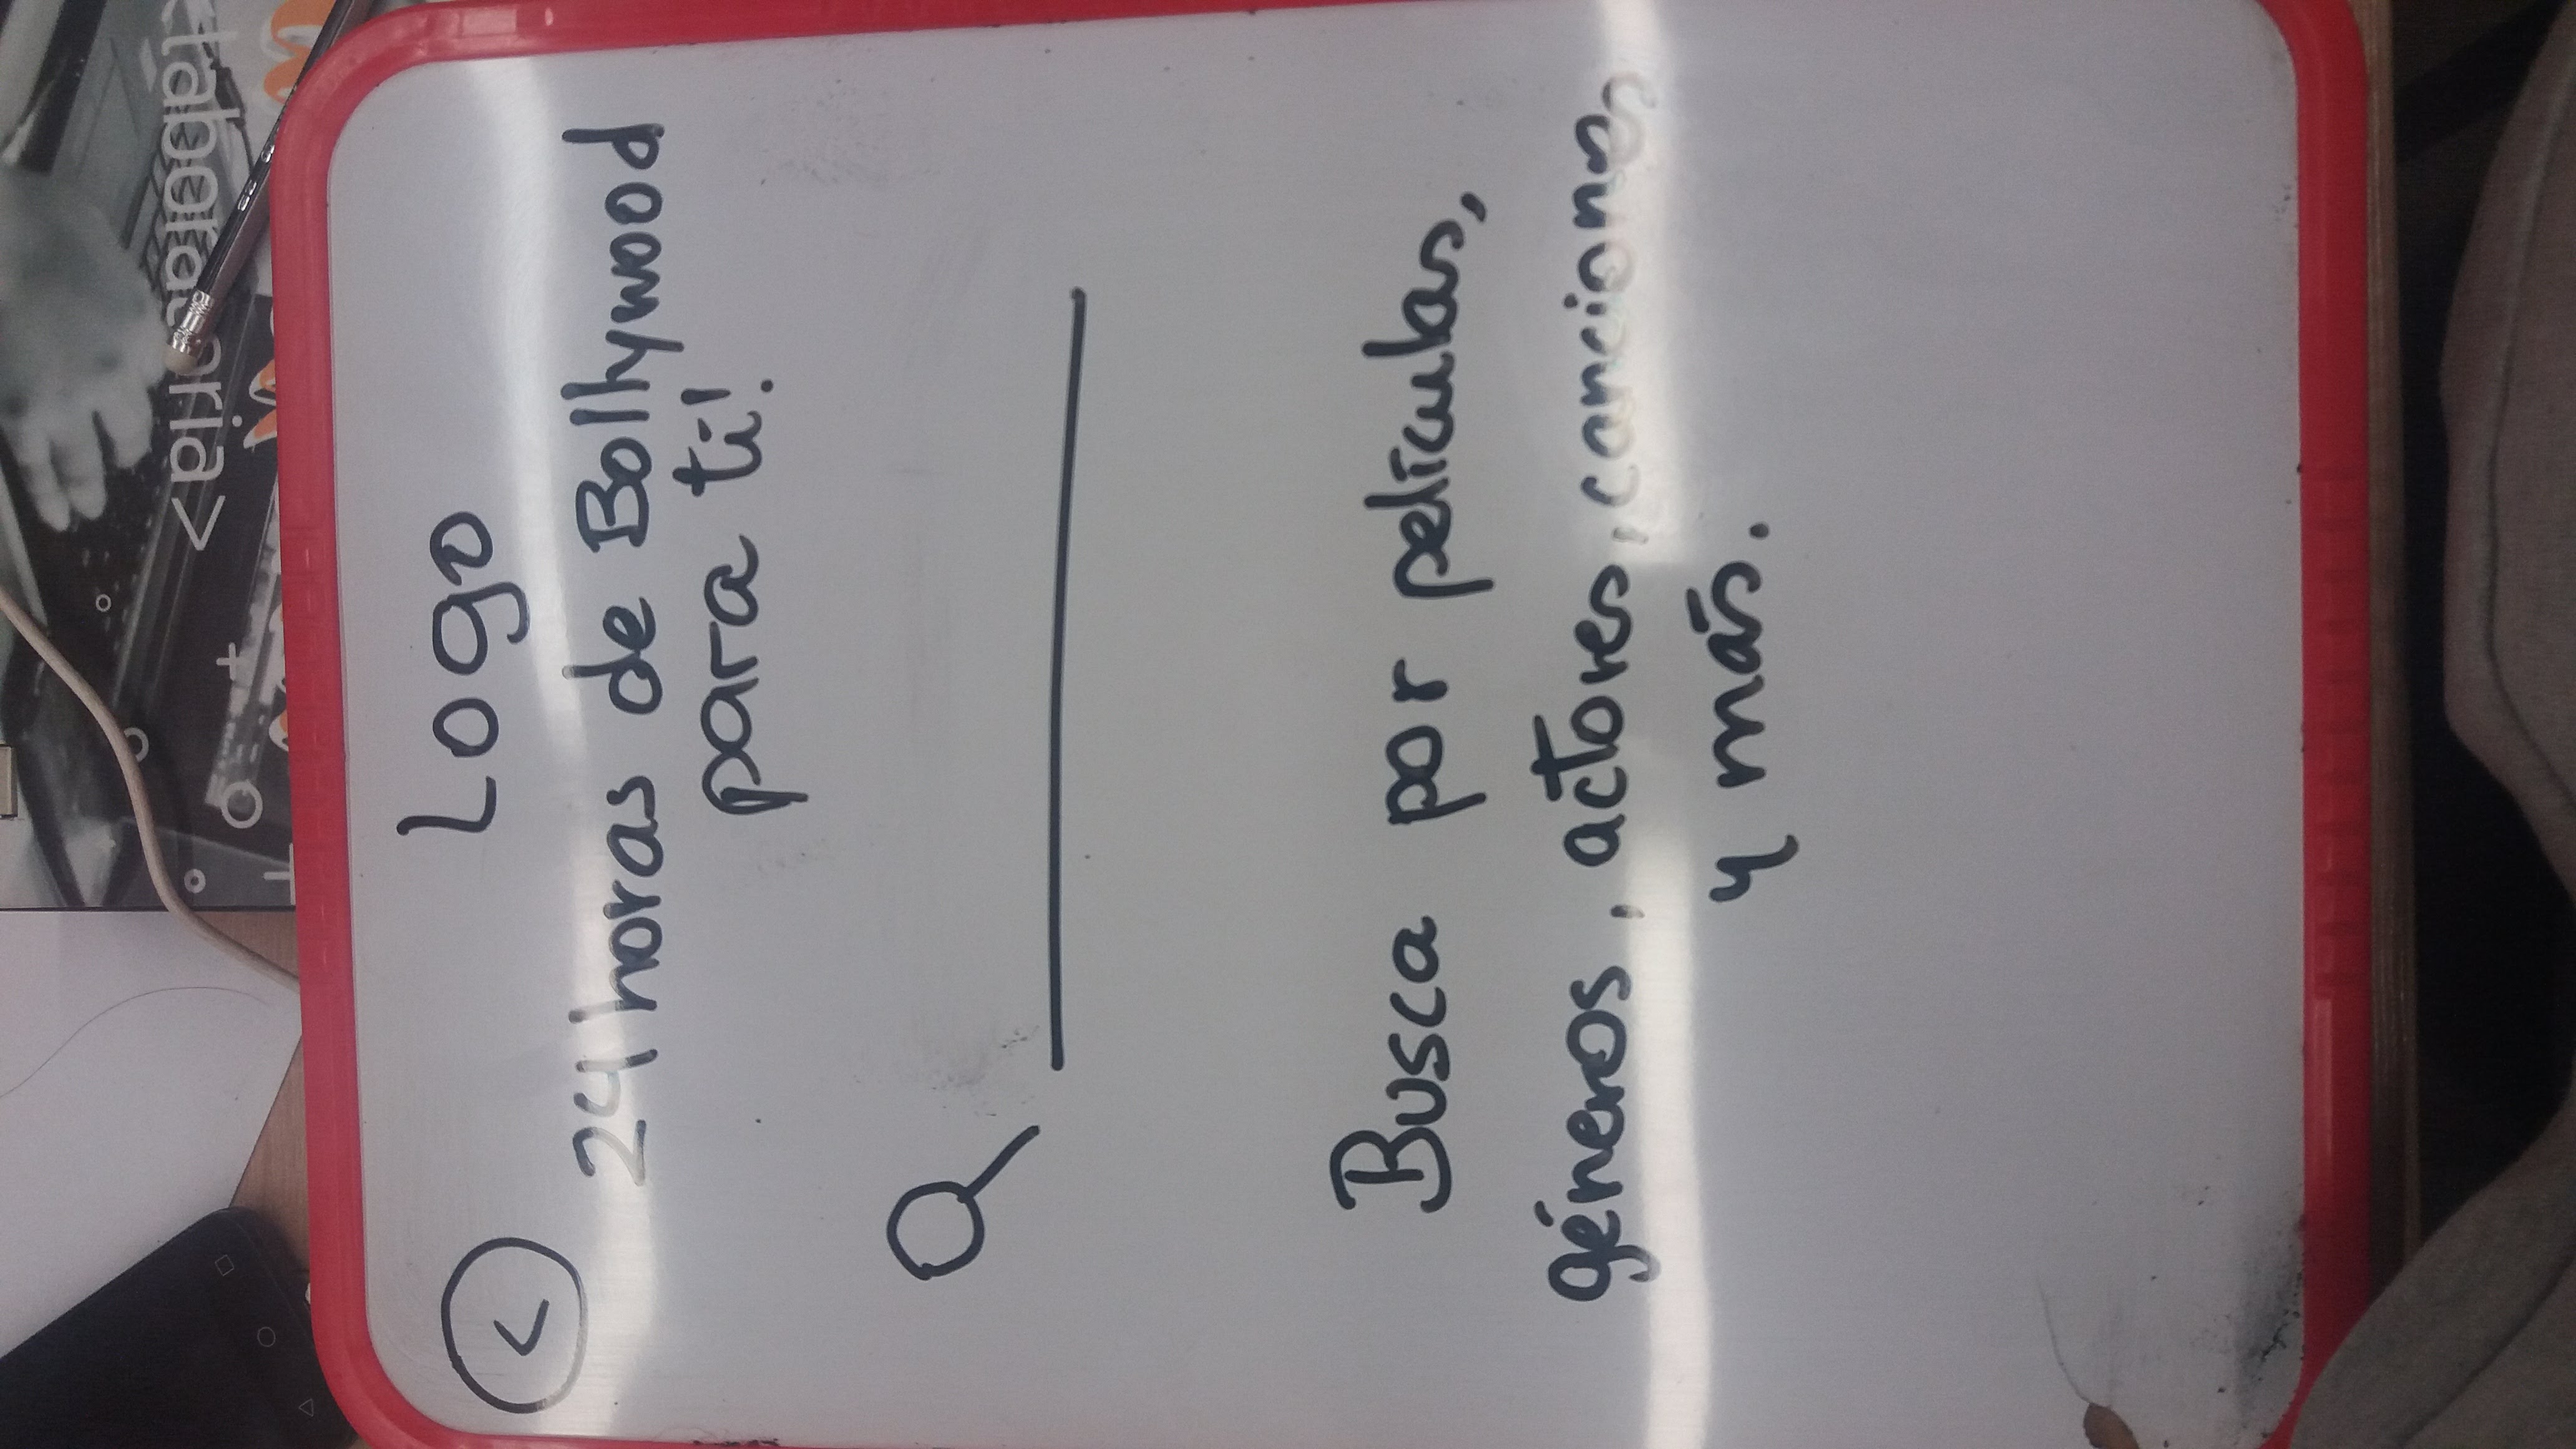 <laboratoria>
Logo
<
24 horas de Bollywood
para ti!
Busca por películas,
géneros, actores, canciones
y más.